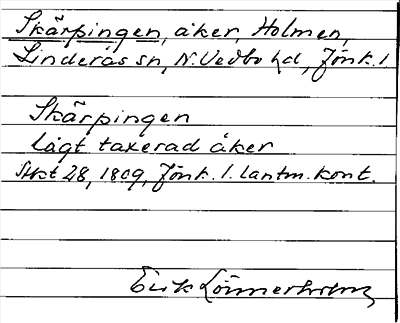 Skärpingen, åker, Holmen,
Linderås sn, N. Vedbo hd, Jönk. l
Skärpingen
lågt taxerad åker
Akt 28, 1809, Jönk. l. lantm. kont.
Erik Lönnerholm